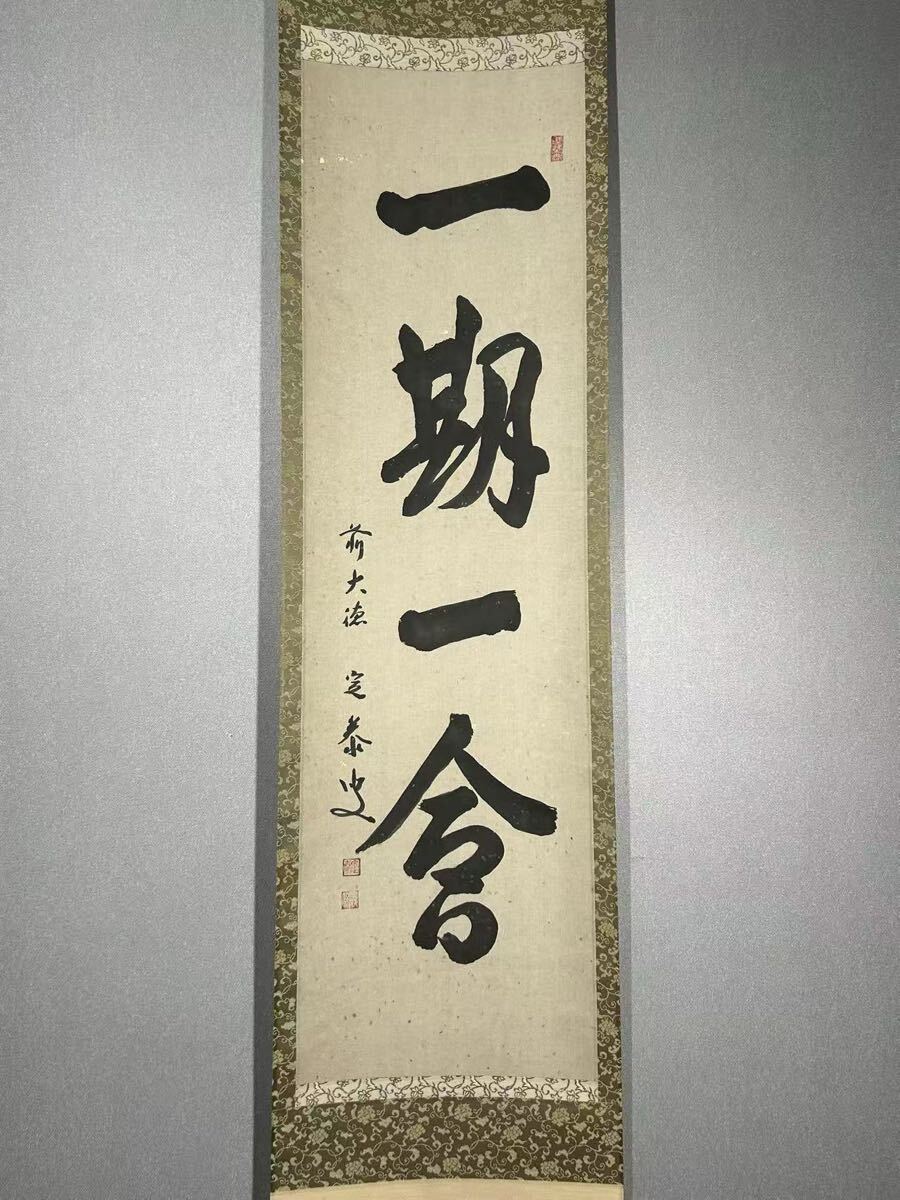 一期一會
前大徳 定泰叟